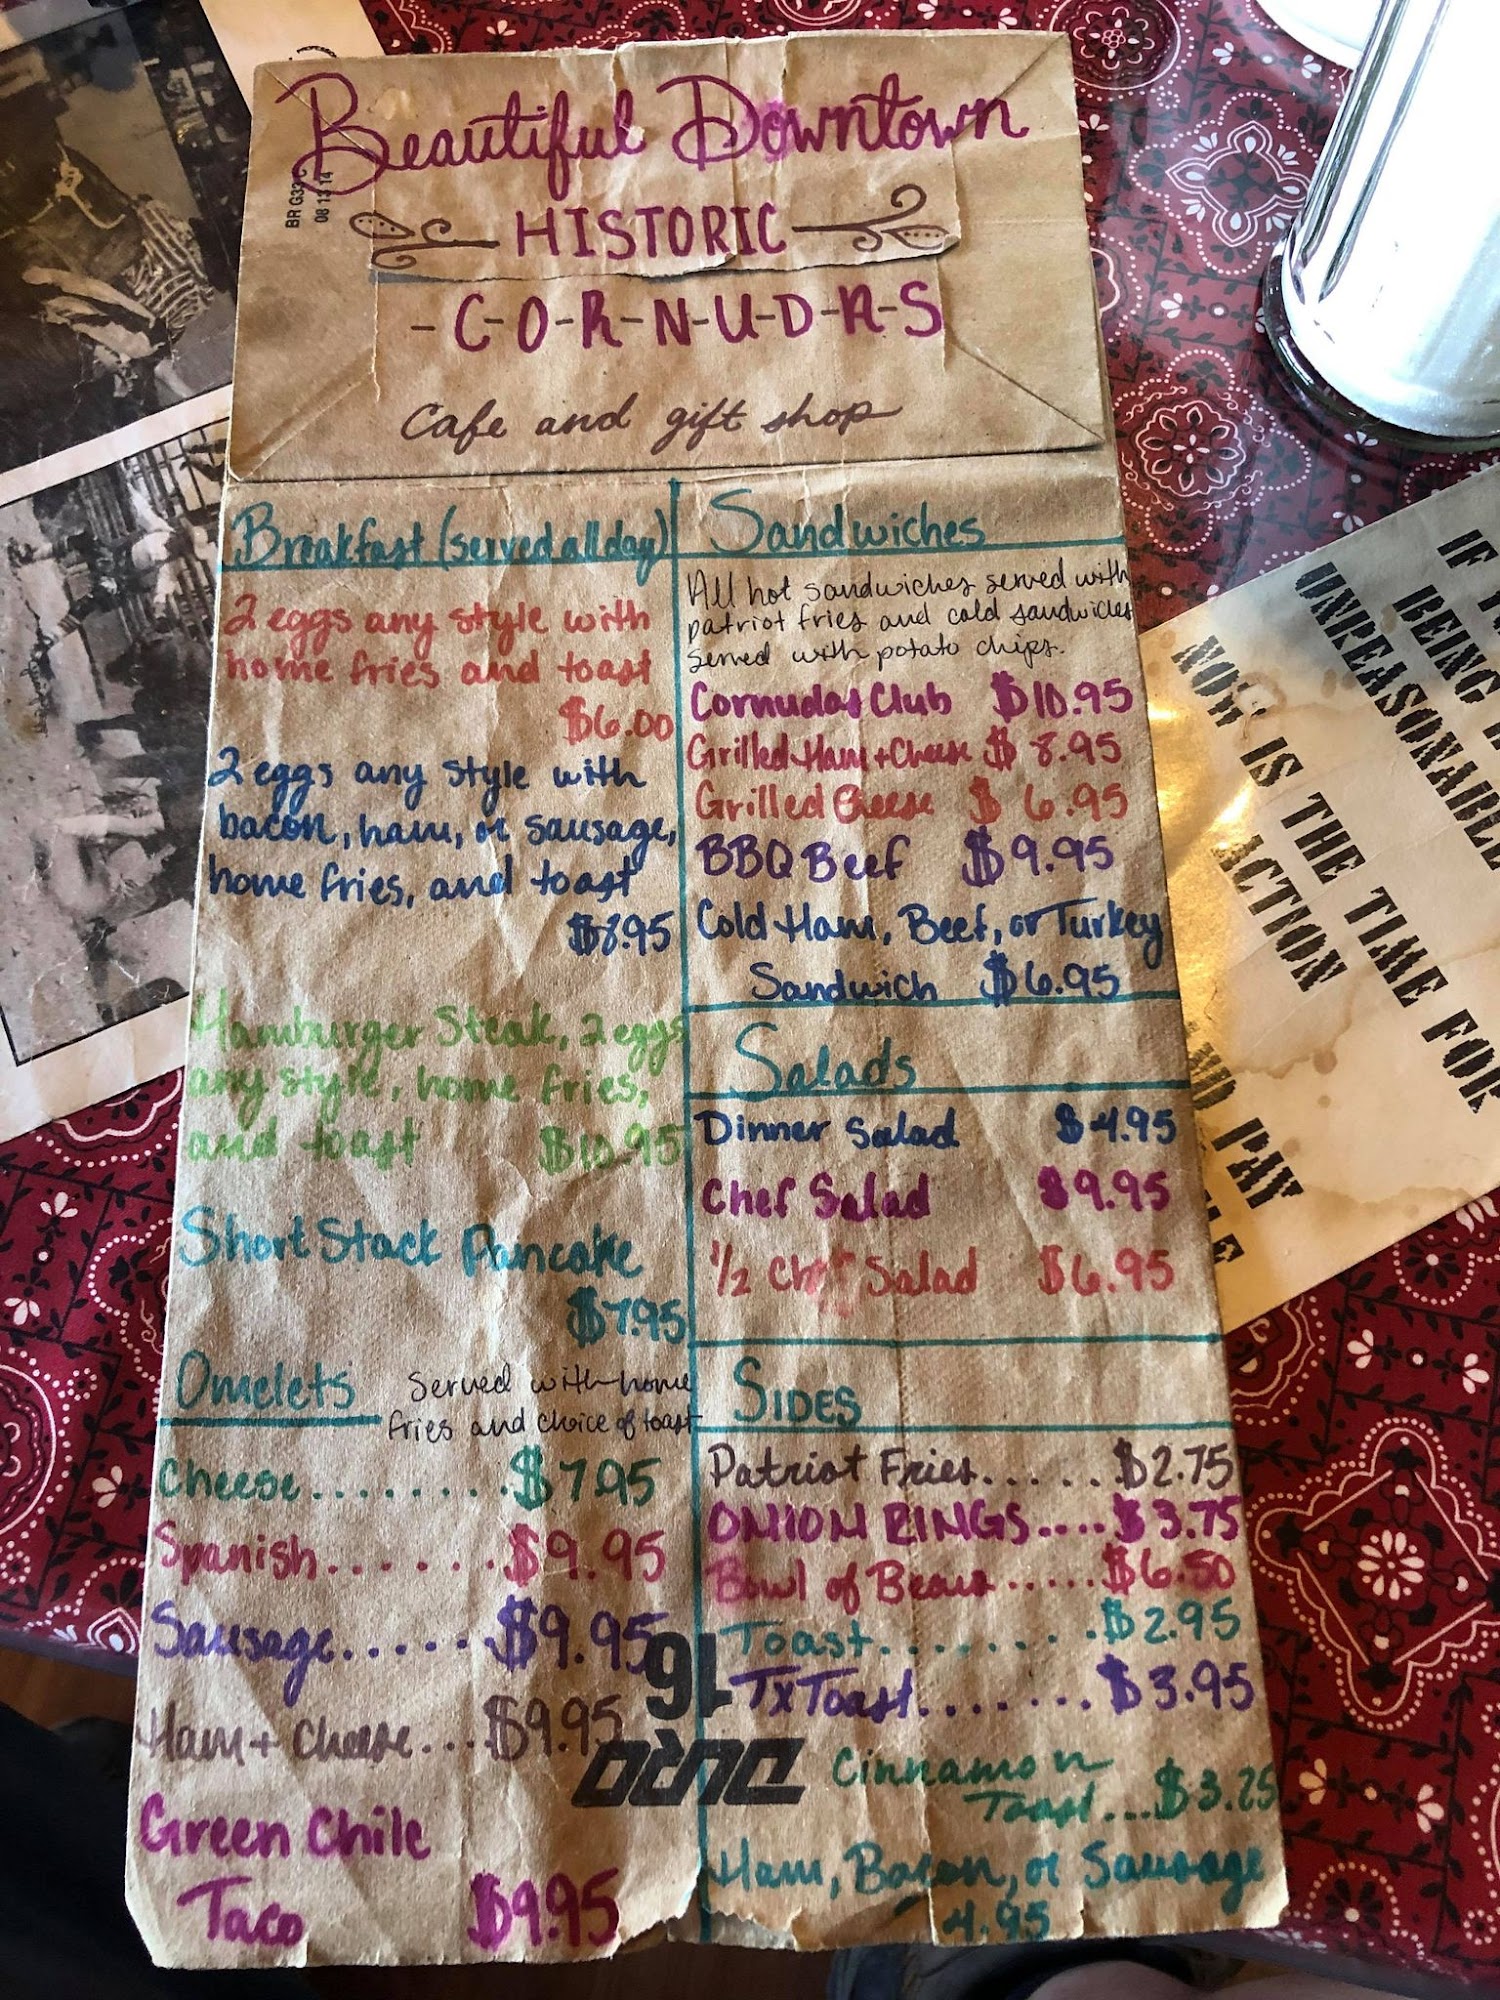 Beautiful Downtown
HISTORIC
-C-O-R-N-U-D-A-S
Cafe and gift shop
BR G33 C
08 13 14
Breakfast (served all day)
2 eggs any style with
home fries and toast
$6.00
2 eggs any style with
bacon, ham, or sausage,
home fries, and toast
$8.95
Hamburger Steak, 2 eggs
any style, home fries,
and toast $10.95
Short Stack Pancake
$7.95
Omelets Served with home
fries and choice of toast
Cheese........$7.95
Spanish.......$9.95
Sausage......$9.95
Ham + Cheese...$9.95
Green Chile
Taco $9.95
Sandwiches
All hot sandwiches served with
patriot fries and cold sandwiches
served with potato chips.
Cornudas Club $10.95
Grilled Ham + Cheese $8.95
Grilled Cheese $6.95
BBQ Beef $9.95
Cold Ham, Beef, or Turkey
Sandwich $6.95
Salads
Dinner Salad $4.95
Chef Salad $9.95
1/2 Chef Salad $6.95
SIDES
Patriot Fries......$2.75
ONION RINGS....$3.75
Bowl of Beans.....$6.50
Toast........$2.95
Tx Toast.......$3.95
Cinnamon
Toast...$3.25
Ham, Bacon, or Sausage
4.95
16
DURO
IF
BEING
UNREASONABLE
NOW IS THE TIME FOR
ACTION
PAY